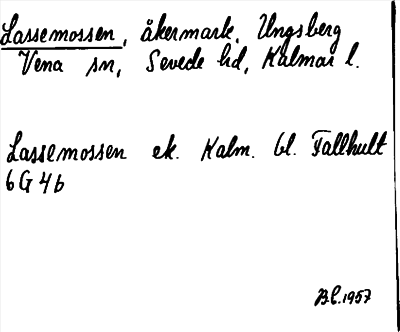 Lassemossen, åkermark, Ungsberg
Vena sn, Sevede hd, Kalmar l.
Lassemossen ek. Kalm. bl. Fallhult
6 G 4 b
B.l. 1957